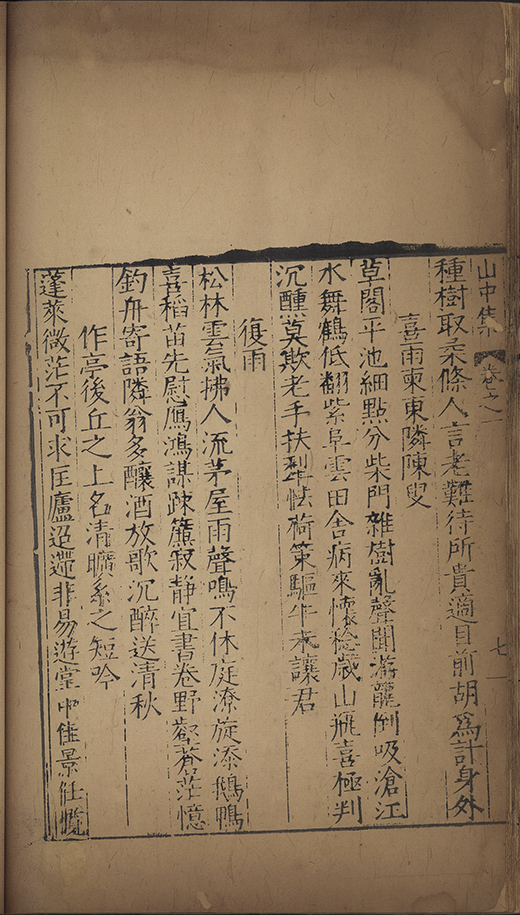 山中集 卷之一 七
種樹取柔條人言老難待所貴適目前胡爲計身外
喜雨柬東隣陳叟
草閣平池細點分柴門雜樹亂聲聞游龍倒吸滄江
水舞鶴低翻紫阜雲田舍病來懷稔歲山瓶喜極判
沉醺莫欺老手扶犁怯荷策驅牛未讓君
復雨
松林雲氣拂人流茅屋雨聲鳴不休庭潦旋添鵝鴨
喜稻苗先慰鴈鴻謀疎簾寂静宜書卷野𡐛蒼茫憶
釣舟寄語隣翁多釀酒放歌沉醉送清秋
作亭後丘之上名清曠系之短吟
蓬萊微茫不可求匡廬迢遰非易遊堂中佳景任攬